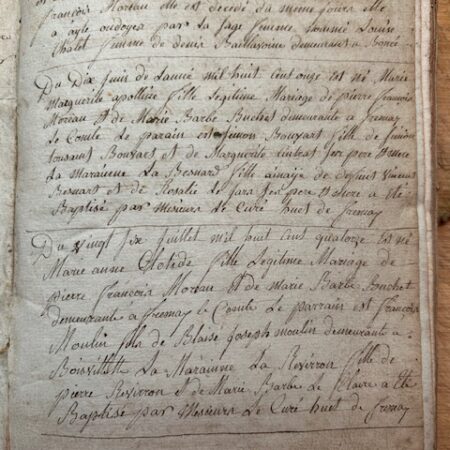 françois Moreau elle est decédé du meme jours elle
a ayté ondoyes par la sage femme nommé Louise
Chalet femme de denis Baillavoine demeurant a Boncé
Du Dix juin de Lannée mil huit cent onze Est né Marie
Marguerite apolline fille Legitime Mariage de pierre françois
Moreau Et de Marie Barbe Buchet demeurante a fresnay
Le Comte Le parain est Simon Bouvart fils de Simon
tousaint Bouvart et de Marguerite Lintrat ses pere Et mere
La maraienne La Besnard fille ainaije de
Besnart et de Rosalie Le fara ses pere Et mere a Eté
Baptisé par Mesieurs Le Curé huet de frenay
Du Vingt six juillet mil huit Cent quatorze Est né
Marie anne Clotilde fille Legitime Mariage de
pierre françois Moreau Et de marie Barbe Buchet
demeurante a fresnay le Comte Le parrain est françois
Moulin fils de Blaise joseph moulin demeurante a
Boisvillette La Maraienne La Revirron fille de
pierre Revirron et de Marie Barbe Le Claire a Eté
Baptisé par Mesieurs Le Curé huet de frenay